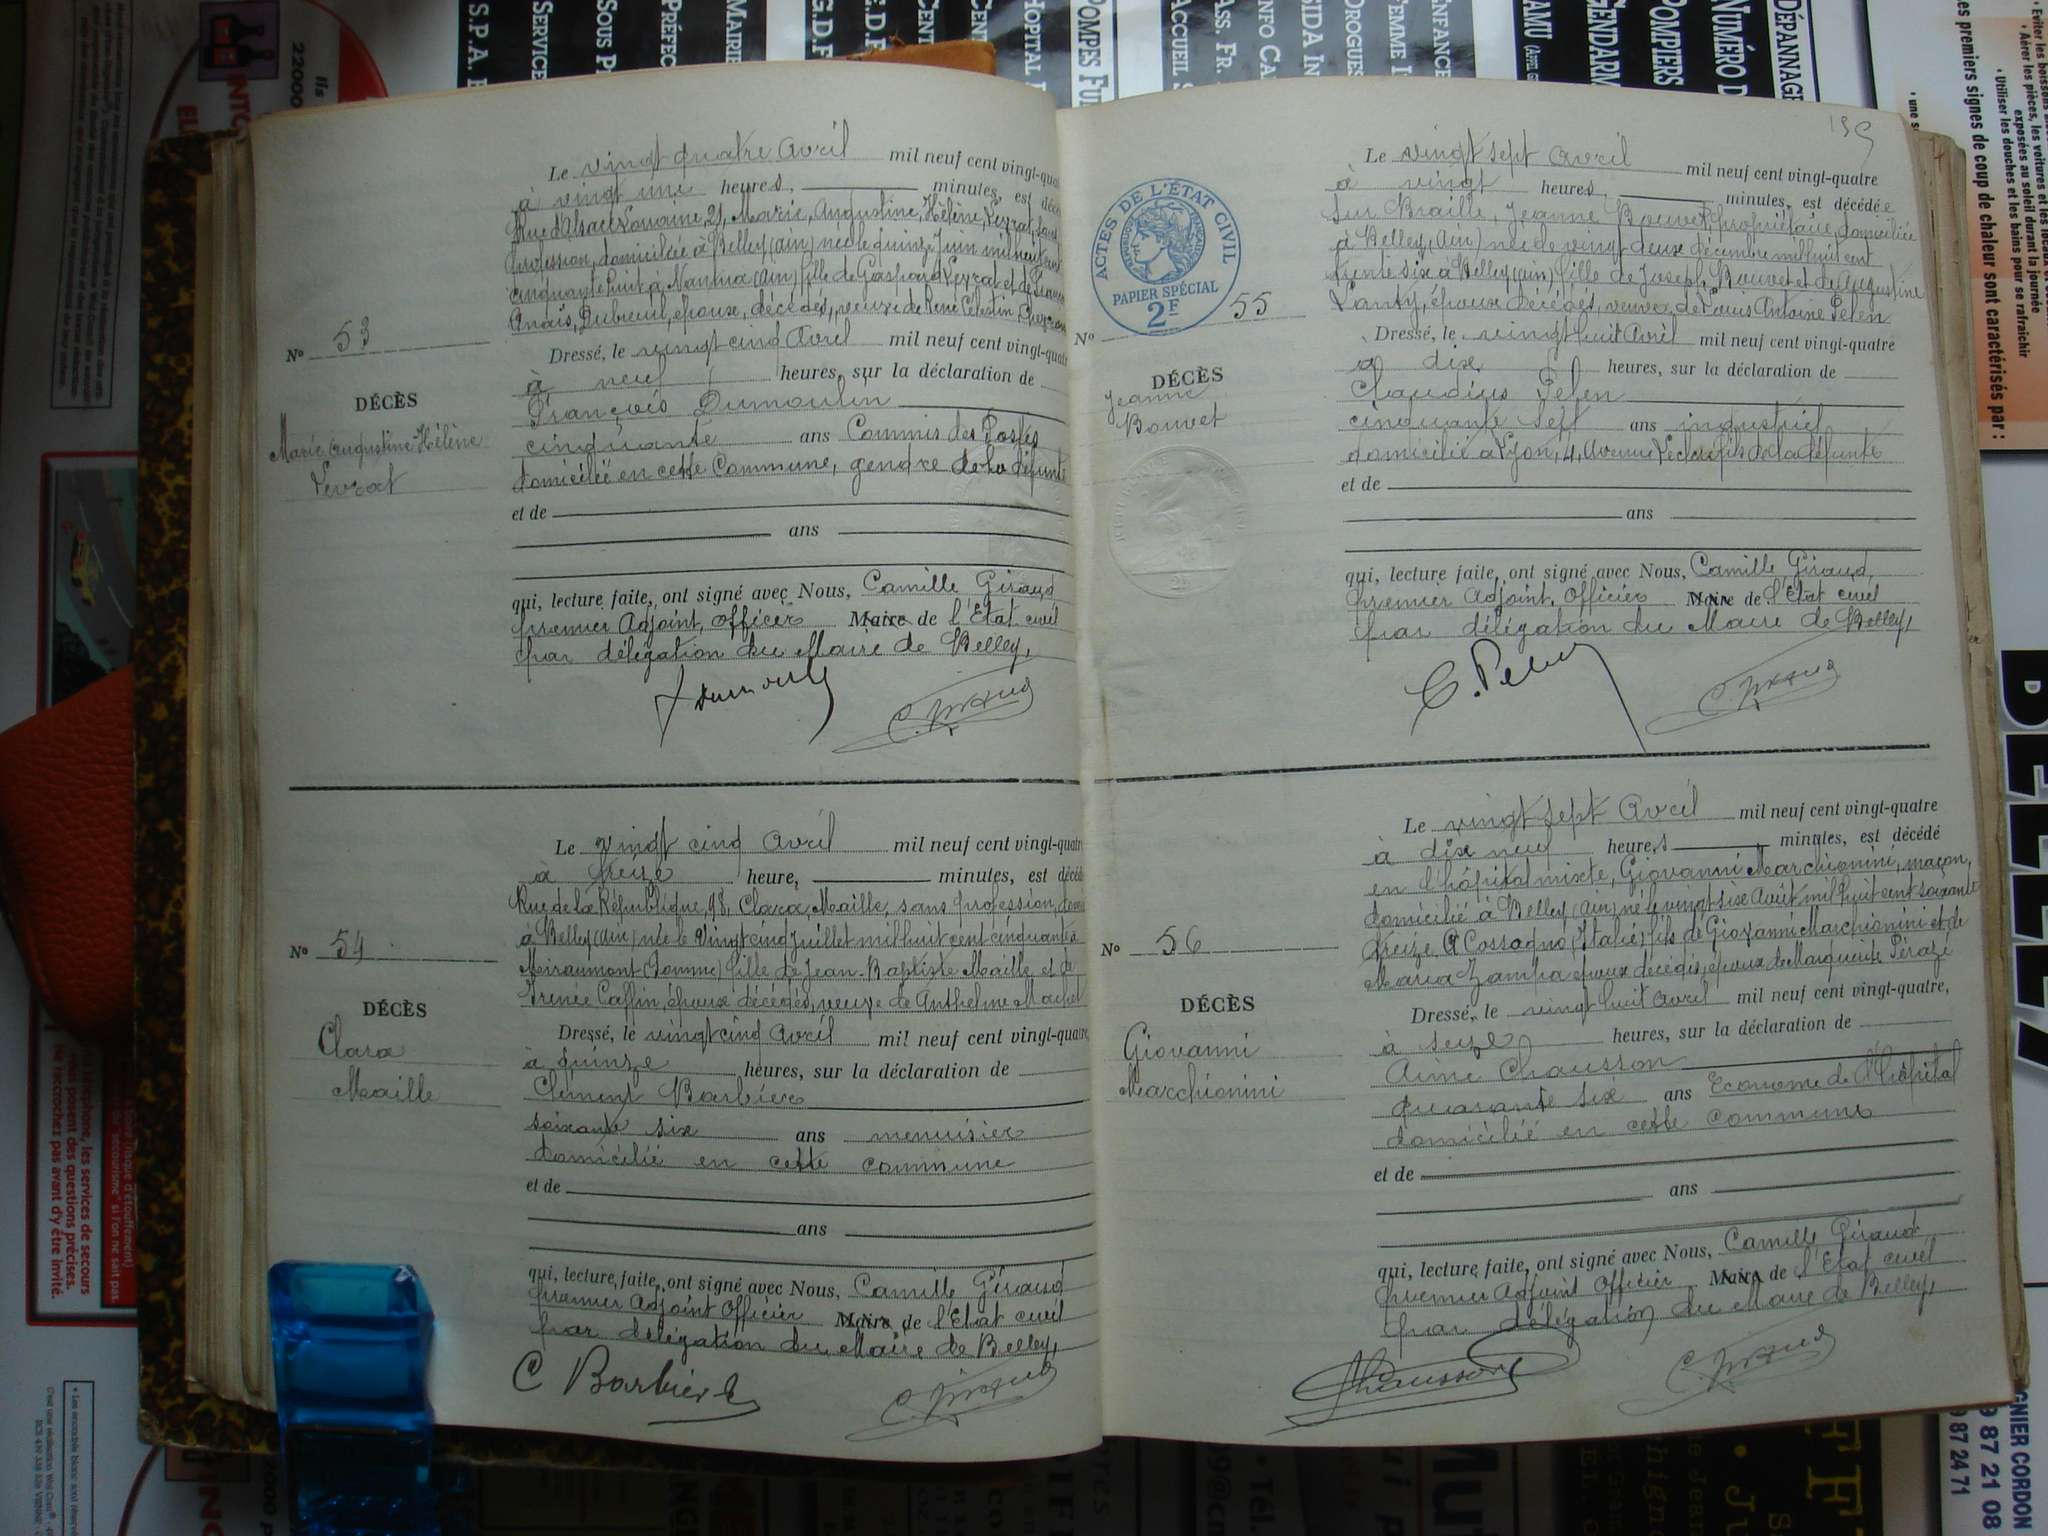 Le vingt quatre avril mil neuf cent vingt-quat
à vingt une heures, minutes, est décé
Rue d'Alsace Lorraine 21, Marie, Augustine, Hélène, Veyrat, sans
profession, domiciliée à Belley (Ain) née le quinze Juin mil huit cent
cinquante huit à Nantua (Ain) fille de Gaspard Veyrat et de
Anaïs, Dubreuil, époux, décédés, veuve de René Célestin
N° 53
DÉCÈS
Marie Augustine-Hélène
Veyrat
Dressé, le vingt cinq Avril mil neuf cent vingt-quatre
à neuf heures, sur la déclaration de
François Dumoulin
cinquante ans Commis des Postes
domicilié en cette Commune, gendre de la défunte
et de
ans
qui, lecture faite, ont signé avec Nous, Camille Giraud
premier Adjoint, officier Maire de l'Etat civil
par délégation du Maire de Belley,
C. Giraud
Le vingt cinq avril mil neuf cent vingt-quatre
à treize heure, minutes, est décédé
Rue de la République, 98, Clara, Maille, sans profession, domi
à Belley (Ain) née le Vingt cinq Juillet mil huit cent cinquante à
Miraumont (Somme) fille de Jean-Baptiste Maille et de
Irénée Caffin, époux décédés, veuve de Anthelme Machet
N° 54
DÉCÈS
Clara
Maille
Dressé, le vingt cinq Avril mil neuf cent vingt-quatre,
à quinze heures, sur la déclaration de
Clément Barbier
soixante six ans menuisier
domicilié en cette commune
et de
ans
qui, lecture faite, ont signé avec Nous, Camille Giraud
premier Adjoint Officier Maire de l'Etat civil
par délégation du Maire de Belley,
C Barbier
C. Giraud
195
Le vingt sept avril mil neuf cent vingt-quatre
à vingt heures, minutes, est décédée
Sur Braille, Jeanne Bouvet, propriétaire, domiciliée
à Belley, (Ain) née le vingt deux décembre mil huit cent
trente six à Belley (Ain), fille de Joseph, Bouvet et de Augustine
Lanty, époux décédés, veuve de Louis Antoine Pelen
ACTES DE L'ÉTAT CIVIL
PAPIER SPÉCIAL
2F
N° 55
DÉCÈS
Jeanne
Bouvet
Dressé, le vingt huit Avril mil neuf cent vingt-quatre
à dix heures, sur la déclaration de
Claudius Pelen
cinquante sept ans industriel
domicilié à Lyon, 4, Avenue fils de la défunte
et de
ans
qui, lecture faite, ont signé avec Nous, Camille Giraud,
premier Adjoint, Officier Maire de l'Etat civil
par délégation du Maire de Belley,
C. Pelen
C. Giraud
Le vingt sept Avril mil neuf cent vingt-quatre
à dix neuf heures minutes, est décédé
en l'hôpital mixte, Giovanni Marchionini, maçon,
domicilié à Belley (Ain) né le vingt six Août mil huit cent soixante
treize à Cossogno (Italie) fils de Giovanni Marchionini et de
Maria Zampa époux décédés, époux de Marguerite Pérazé
N° 56
DÉCÈS
Giovanni
Marchionini
Dressé, le vingt huit avril mil neuf cent vingt-quatre,
à seize heures, sur la déclaration de
Aimé Chausson
quarante six ans Econome de l'Hôpital
domicilié en cette commune
et de
ans
qui, lecture faite, ont signé avec Nous, Camille Giraud
premier Adjoint Officier Maire de l'Etat civil
par délégation du Maire de Belley,
Chausson
C. Giraud
S.P.A.
SERVICE
SOUS P
PRÉFEC
MAIRIE
G.D.F
HOPITAL
POMPES FU
ACCUEIL S
ASS. FR.
INFO CA
SIDA IN
DROGUES
FEMME
ENFANCE
SAMU
GENDARM
POMPIERS
NUMÉRO D
DÉPANNAGE
• Aérer les pièces, les voitures et les loca
exposées au soleil durant la journée
• Utiliser les douches et les bains pour se rafraîchir
Les premiers signes de coup de chaleur sont caractérisés par :
GNIER CORDON
9 87 21 08
9 87 24 71